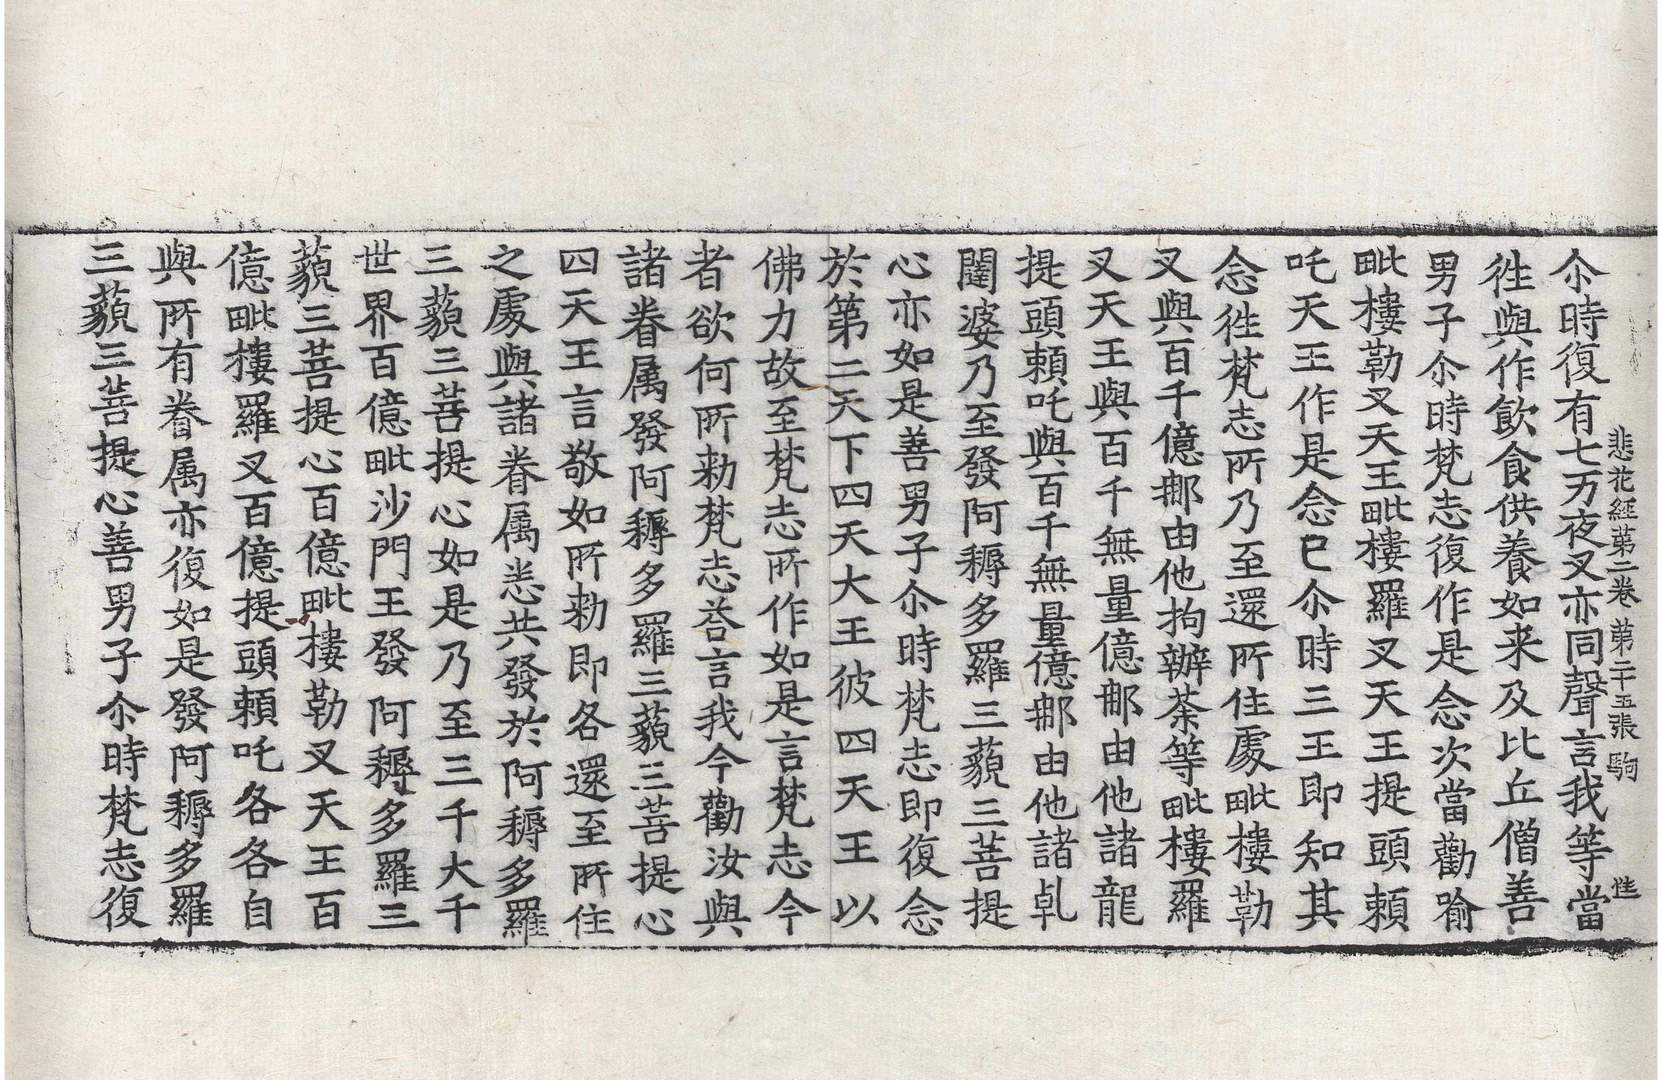 悲花經第二卷 第二十五張 駒
尒時復有七万夜叉亦同聲言我等當
徃與作飲食供養如来及比丘僧善
男子尒時梵志復作是念次當勸喻
毗樓勒叉天王毗樓羅叉天王提頭頼
吒天王作是念已尒時三王即知其
念徃梵志所乃至還所住處毗樓勒
叉與百千億那由他拘辦荼等毗樓羅
叉天王與百千無量億那由他諸龍
提頭頼吒與百千無量億那由他諸乹
闥婆乃至發阿耨多羅三藐三菩提
心亦如是善男子尒時梵志即復念
於第二天下四天大王彼四天王以
佛力故至梵志所作如是言梵志今
者欲何所勑梵志荅言我今勸汝與
諸眷属發阿耨多羅三藐三菩提心
四天王言敬如所勑即各還至所住
之處與諸眷属悉共發於阿耨多羅
三藐三菩提心如是乃至三千大千
世界百億毗沙門王發阿耨多羅三
藐三菩提心百億毗樓勒叉天王百
億毗樓羅叉百億提頭頼吒各各自
與所有眷属亦復如是發阿耨多羅
三藐三菩提心善男子尒時梵志復